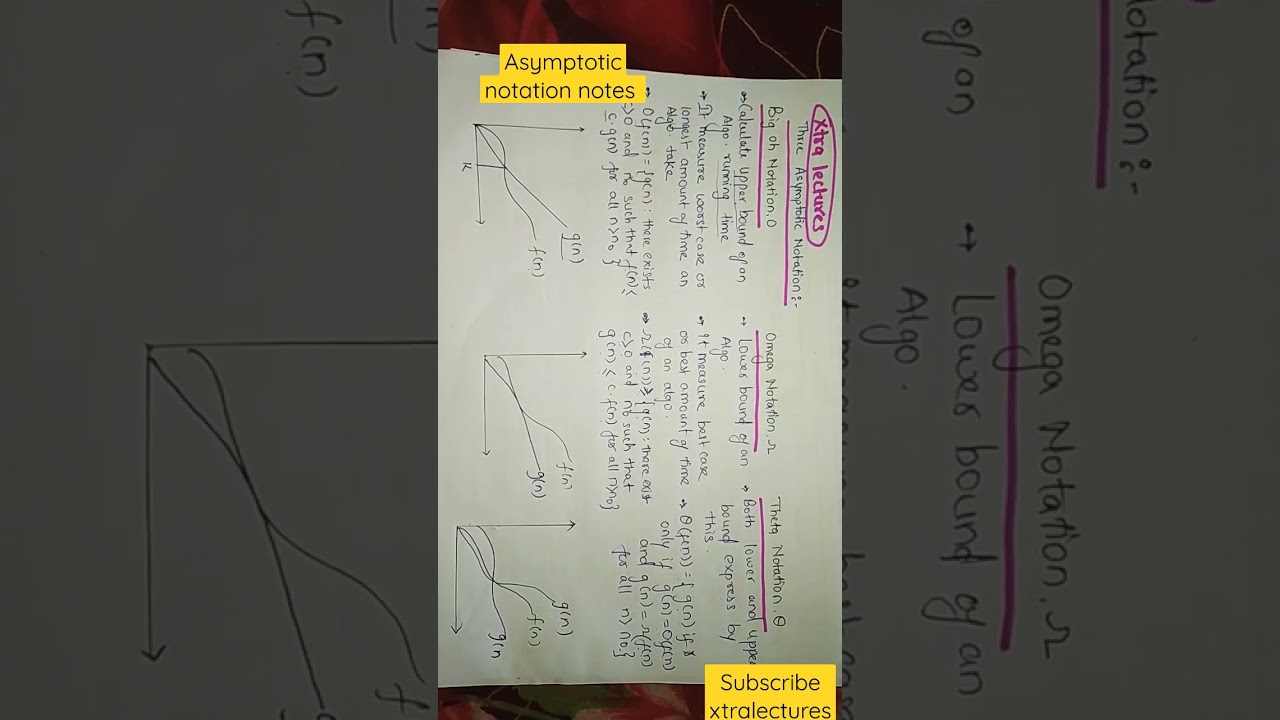 Asymptotic
notation notes
Xtra lectures
Three Asymptotic Notation:-
Big oh Notation, O
→ Calculate upper bound of an
Algo. running time
→ It measure worst case or
longest amount of time an
Algo. take
→ O(f(n)) = {g(n): there exists
c>0 and n₀ such that f(n) ≤
c.g(n) for all n>n₀}
K
g(n)
f(n)
Omega Notation, Ω
→ Lower bound of an
Algo.
→ It measure best case
or best amount of time
of an algo.
→ Ω(f(n)) ≥ {g(n): there exist
c>0 and n₀ such that
g(n) ≤ c.f(n) for all n>n₀}
f(n)
g(n)
Theta Notation, θ
→ Both lower and uppe
bound express by
this.
→ θ(f(n)) = {g(n) if &
only if g(n) = O(f(n)
and g(n) = Ω(f(n)
for all n>n₀}
g(n)
f(n)
g(n
Subscribe
xtralectures
f(n)
n)
otation:-
of an
Omega Notation, Ω
→ Lower bound of an
Algo.